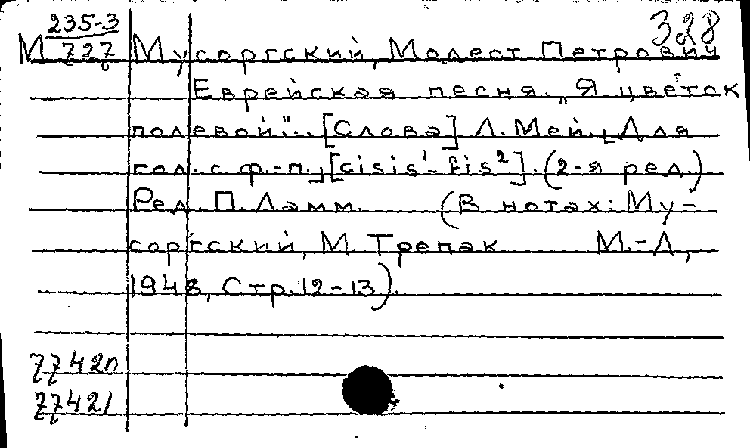 235-3
328
М 727 Мусоргский, Модест Петрович
Еврейская песня. "Я цветок
полевой".. [Слова] Л. Мей, Для
гол. с ф.-п., [cisis¹-fis²]. (2-я ред.)
Ред. П. Ламм. (В нотах: Му-
соргский, М. Трепак М.-Л,
1948, Стр. 12-13).
77420
77421